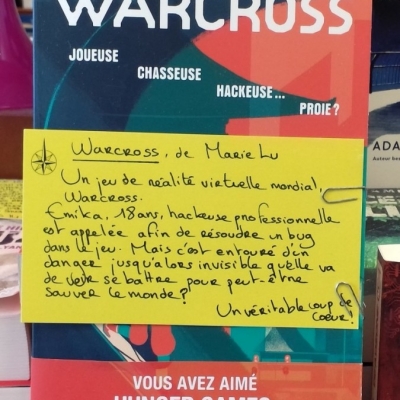 WARCROSS
JOUEUSE
CHASSEUSE
HACKEUSE...
PROIE?
Warcross, de Marie Lu
Un jeu de réalité virtuelle mondial,
Warcross.
Emika, 18 ans, hackeuse professionnelle
est appelée afin de résoudre un bug
dans le jeu. Mais c'est entouré d'un
danger jusqu'alors invisible qu'elle va
de voir se battre pour peut-être
sauver le monde?
Un véritable coup de
coeur!
ADA
VOUS AVEZ AIMÉ
HUNGER GAMES